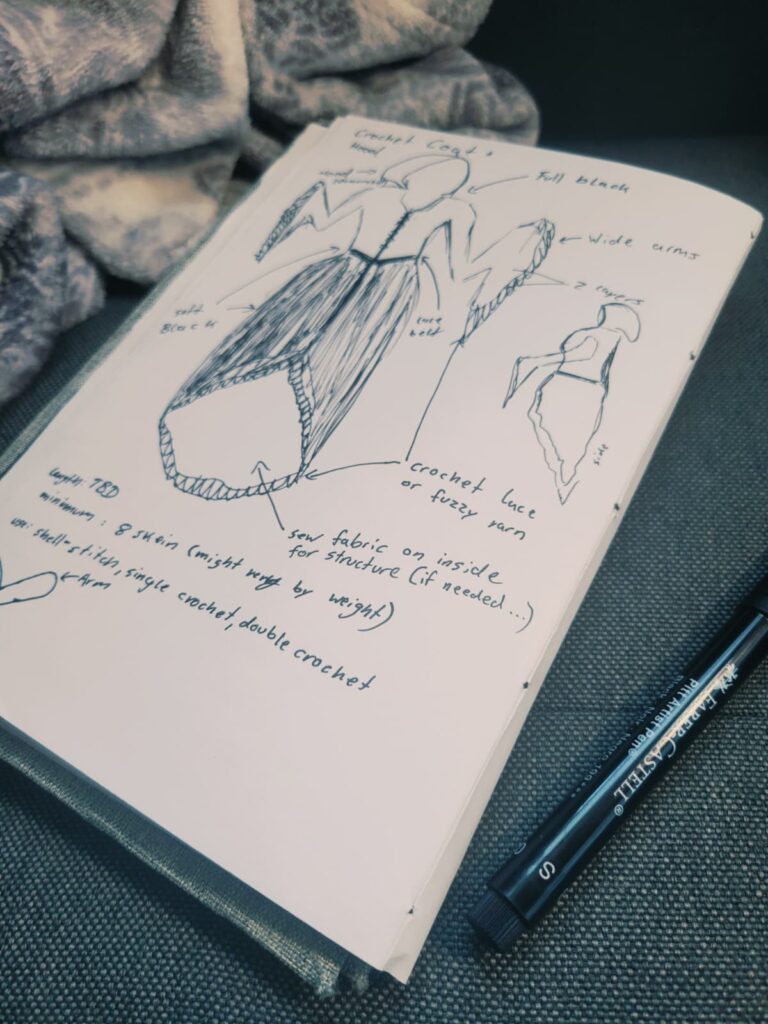 Crochet Coat +
Hood
Full black
Wide arms
2 layers
soft
Black
lace
belt
side
crochet lace
or fuzzy yarn
sew fabric on inside
for structure (if needed...)
length: TBD
minimum: 8 skein (might vary by weight)
use: shell-stitch, single crochet, double crochet
Arm
FABER-CASTELL
PITT ARTIST PEN
S